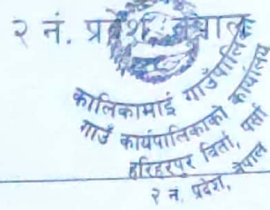 २ नं. प्रदेश, नेपाल
कालिकामाई गाउँपालिका
गाउँ कार्यपालिकाको कार्यालय
हरिहरपुर विर्ता, पर्सा
२ नं. प्रदेश, नेपाल